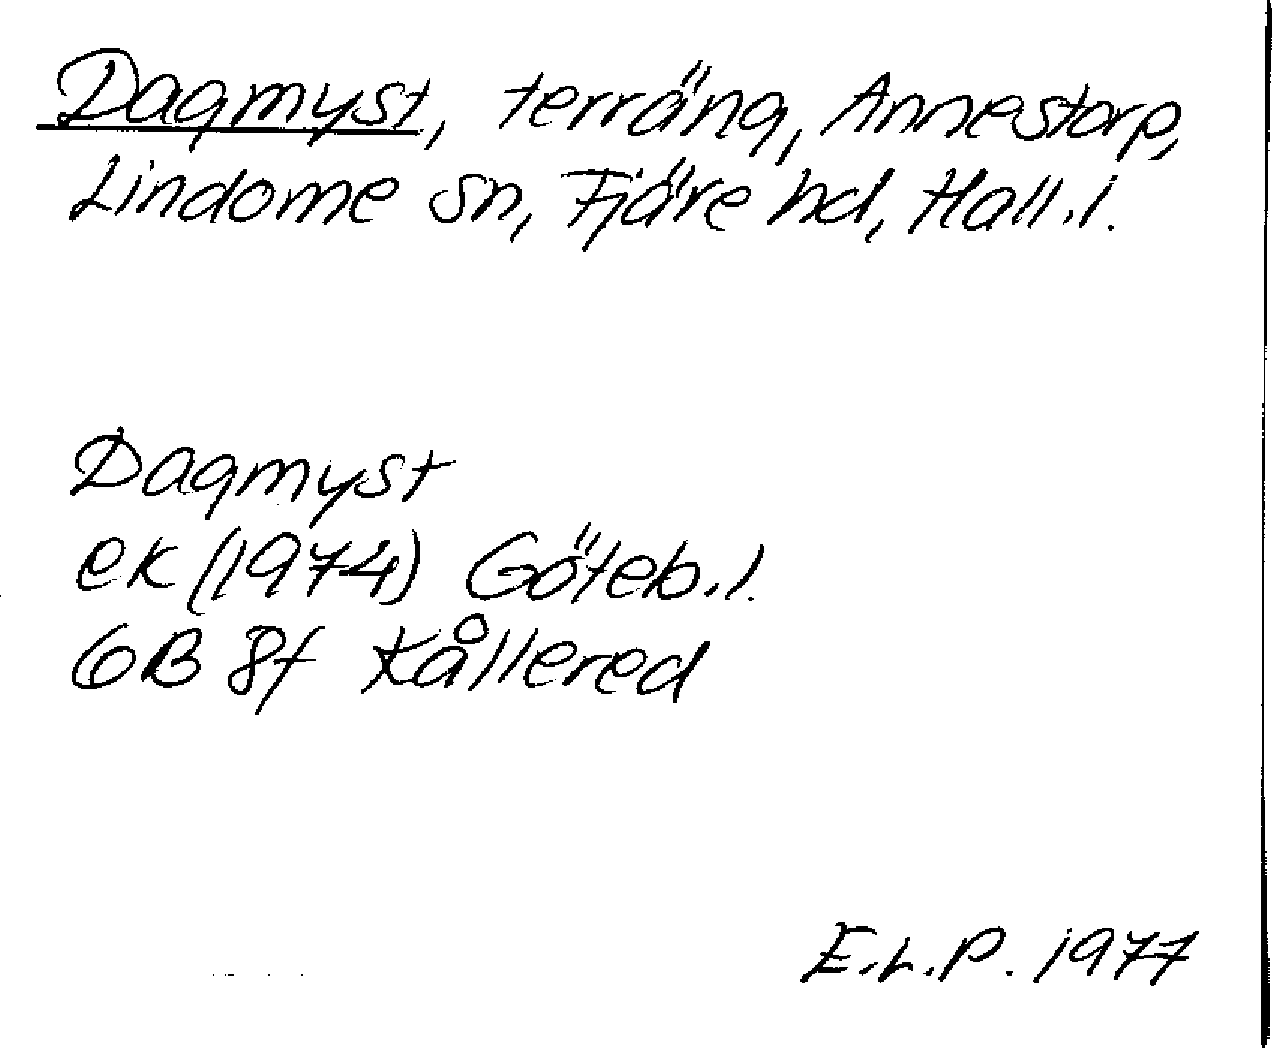 Dagmyst, terräng, Annestorp,
Lindome sn, Fjäre hd, Hall.l.
Dagmyst
ek (1974) Göteb.l.
6B 8f Kållered
E.L.P. 1977